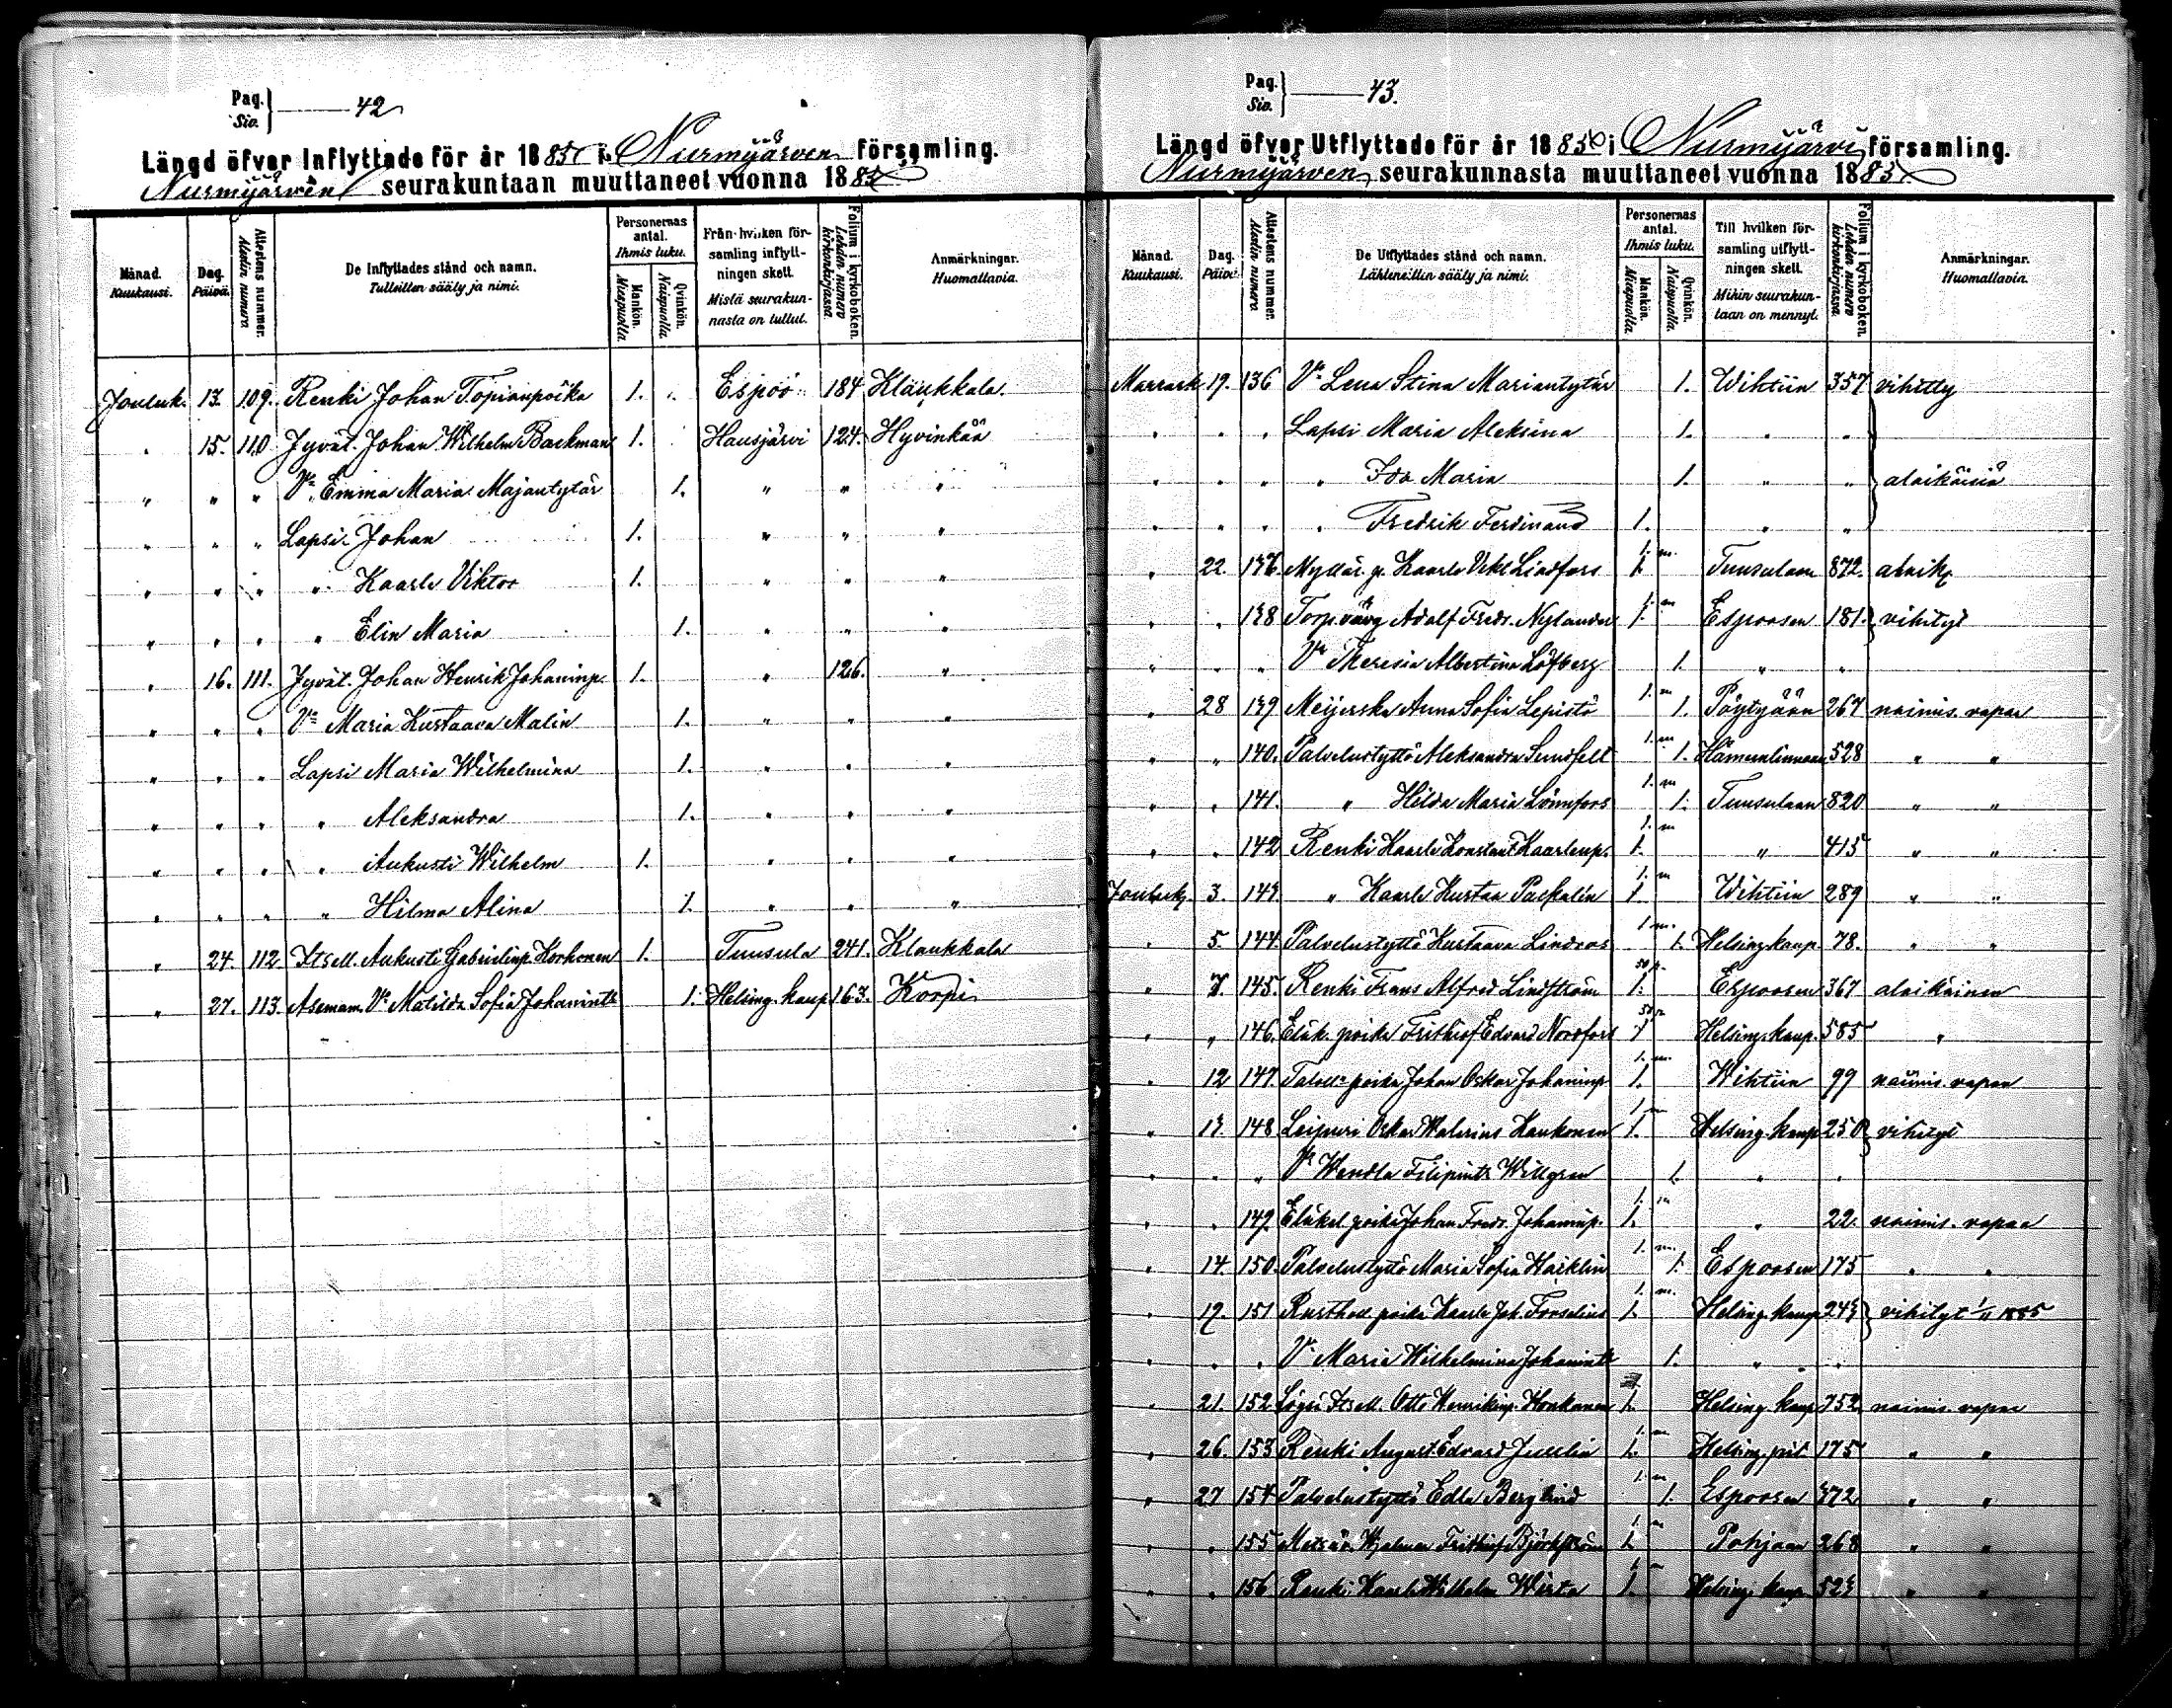 Pag. Siv. } 42
Längd öfver Inflyttade för år 1885 i Nurmijärven församling.
Nurmijärven seurakuntaan muuttaneet vuonna 1885
Månad. Kuukausi. | Dag. Päivä. | Attestens nummer. Atestin numero | De Inflyttades stånd och namn. Tulleitten sääty ja nimi. | Personernas antal. Ihmis luku. Mankön. Miespuolia. Qvinkön. Naispuolia. | Från hvilken församling inflyttningen skett. Mistä seurakunnasta on tullut. | Folium i kyrkoboken. Lehden numero kirkonkirjassa. | Anmärkningar. Huomattavia.
Jouluk. 13. 109. Renki Johan Topianpoika 1. Espoo 184 Klaukkala.
" 15. 110 Jyvät. Johan Wilhelm Backman 1. Hausjärvi 124. Hyvinkää
" " " Vo. Emma Maria Majantytär 1. " " "
" " " Lapsi Johan 1. " " "
" " " " Kaarle Viktor 1. " " "
" " " " Elin Maria 1. " " "
" 16. 111. Jyvät. Johan Henrik Johaninp. 1. " 126. "
" " " Vo Maria Kustaava Malin 1. " " "
" " " Lapsi Maria Wilhelmina 1. " " "
" " " " Aleksandra 1. " " "
" " " " Aukusti Wilhelm 1. " " "
" " " " Hilma Alina 1. " " "
" 24. 112 Itsell. Aukusti Gabrielinp. Korhonen 1. Tuusula 241. Klaukkala
" 27. 113. Asemam. Vo Matilda Sofia Johanintr 1. Helsing. kaup. 163. Korpi
Pag. Siv. } 43.
Längd öfver Utflyttade för år 1885 i Nurmijärvi församling.
Nurmijärven seurakunnasta muuttaneet vuonna 1885
Månad. Kuukausi. | Dag. Päivä. | Attestens nummer. Atestin numero | De Utflyttades stånd och namn. Lähteneitten sääty ja nimi. | Personernas antal. Ihmis luku. Mankön. Miespuolia. Qvinkön. Naispuolia. | Till hvilken församling utflyttningen skett. Mihin seurakuntaan on mennyt. | Folium i kyrkoboken. Lehden numero kirkonkirjassa. | Anmärkningar. Huomattavia.
Marrask 19. 136 Vo Lena Stina Mariantytär 1. Wihtiin 357 vihitty
" " " Lapsi Maria Aleksina 1. " "
" " " " Ida Maria 1. " " alaikäisiä
" " " " Fredrik Ferdinand 1. " "
" 22. Myllär. p. Kaarle Lindfors 1. 1. m. Tuusulaan 872. alaik.
" " 138 Adolf Fredr. Nylander 1. 1. m Espoosen 181. vihityt
" " " Vo Theresia Albertina Löfberg 1. " "
" 28 139 Meijerska Anna Sofia Lepistö 1. m 1. Pöytyään 267 naimis. vapaa
" " 140. Palvelustyttö Aleksandra Sundfelt 1. m 1. Hämeenlinnaan 528 " "
" " 141. " Hilda Maria Lönnfors 1. m 1. Tuusulaan 820 " "
" " 142 Renki Kaarle Konstant Kaarlenp. 1. 1. m " 415 " "
Jouluk. 3. 143. " Kaarle Kustaa 1. m 1 Wihtiin 289 " "
" 5. 144. Palvelustyttö Kustaava Lindroos 1 m. 1. Helsing. kaup. 78. " "
" 7. 145. Renki Frans Alfred Lindström 50 p. 1. Espoosen 367 alaikäinen
" " 146. poika Frithiof Edvard Nordfors 50 p 1 Helsing. kaup. 585 "
" 12 147. poika Johan Oskar Johaninp 1. m. 1. Wihtiin 99 naimis. vapaa
" 13. 148 Leipuri Oskar Walerius Kaukonen 1 m 1. Helsing. kaup 250 vihityt
" " " Vo Wendla Filipintr Willgren 1. " "
" " 149. poika Johan Fredr. Johaninp. 1. m 1. " 22. naimis. vapaa
" 14. 150. Palvelustyttö Maria Sofia Häcklin 1. m. 1. Espoosen 175 " "
" 151 Rusthol. poika Kaarle Joh. Forselius 1. m. 1. Helsing. kaup 243 vihityt 1/11 1885
" " " Vo Maria Wilhelmina Johanintr 1. " "
" 21. 152 Itsell. Otto Henrikinp. Honkanen 1. Helsing. kaup 752 naimis. vapaa
" 26. 153 Renki August Edvard Juselin 1. m 1. Helsing. pit 175 " "
" 27 154 Palvelustyttö Edla Berglind 1. m 1. Espoosen 372 " "
" " 155 Hjalmar Frithiof Björkström 1. m 1. Pohjaan 268 " "
" " 156. Renki Kaarle Wilhelm Wirta 1. m 1. Helsing. kaup. 523 " "